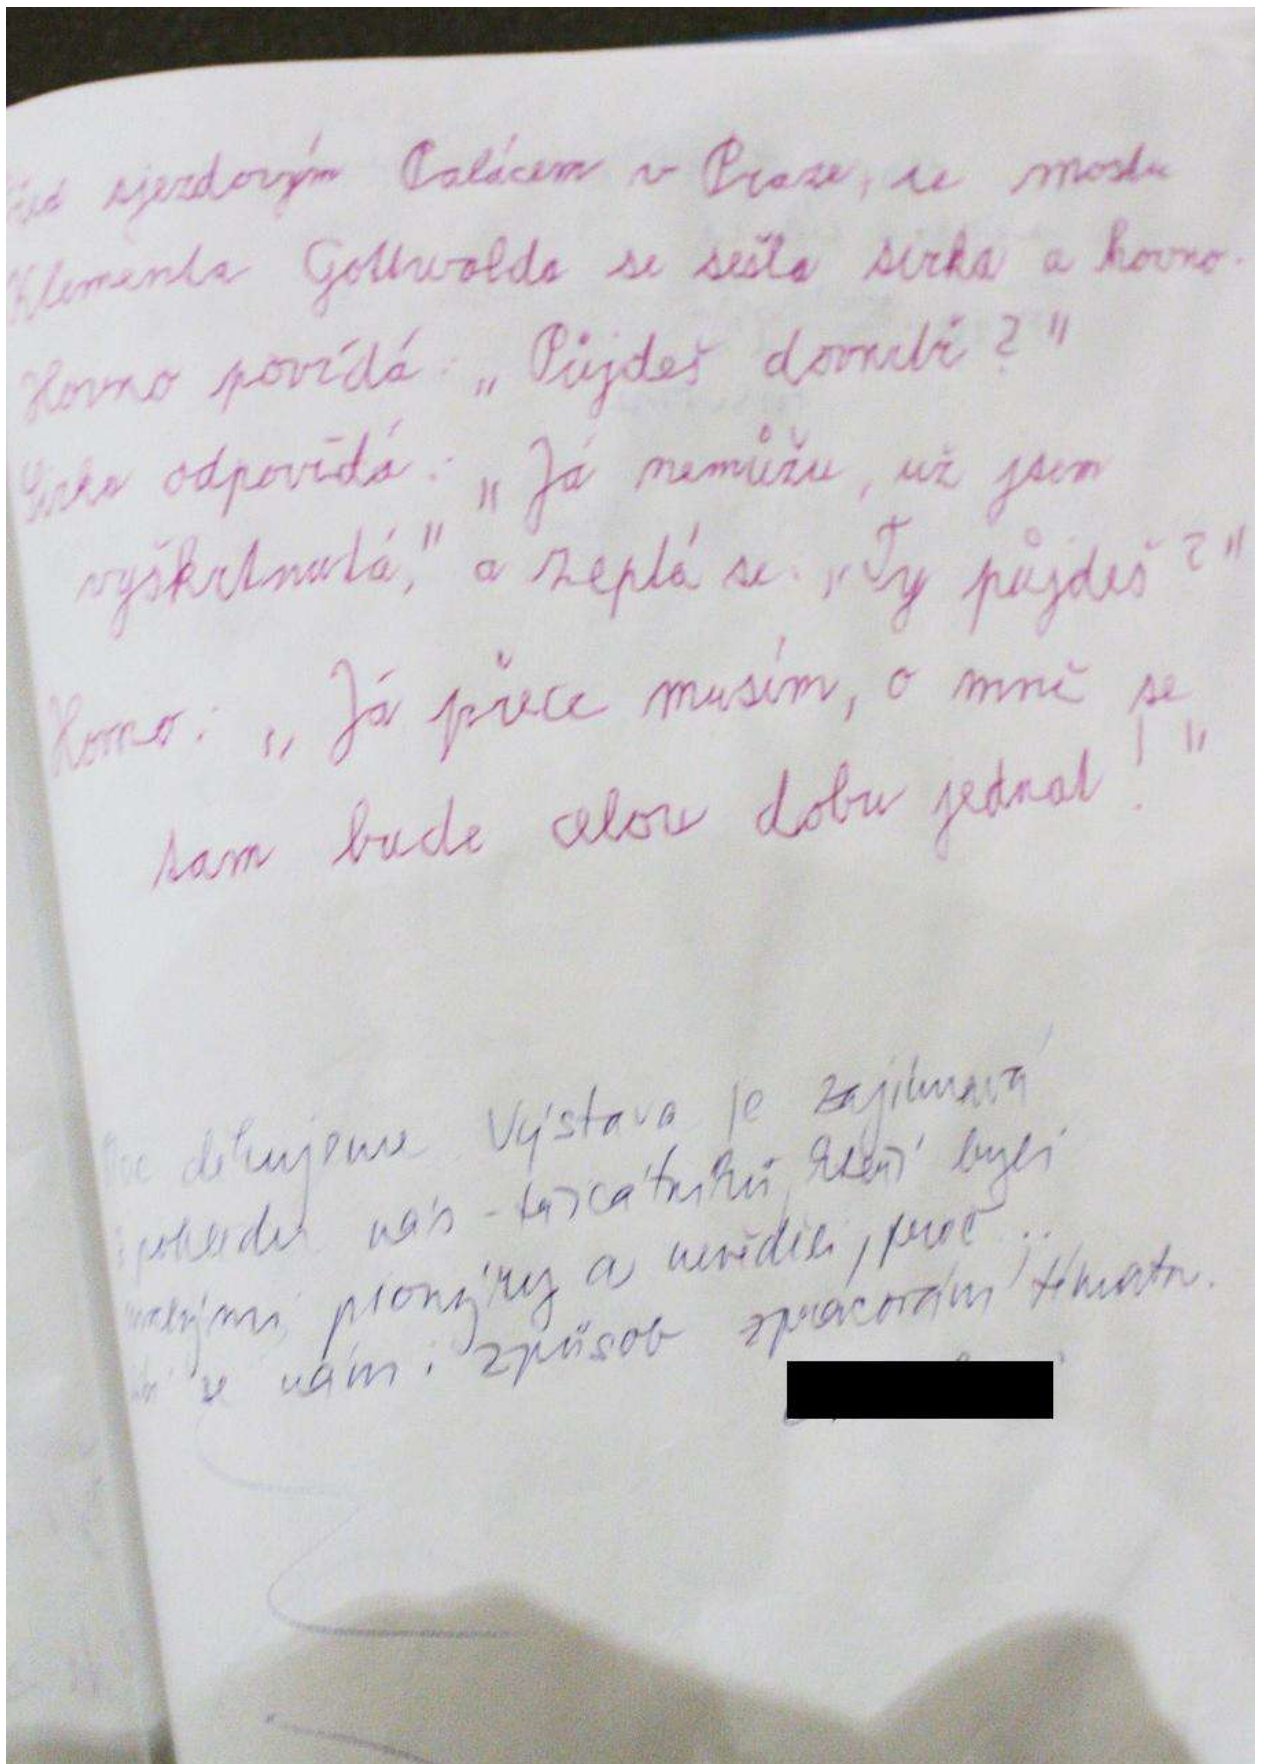 Před sjezdovým Palácem v Praze, ze mostu
Klementa Gottwalda se sešla sirka a hovno.
Hovno povídá: „Půjdeš dovnitř?"
Sirka odpovídá: „Já nemůžu, už jsem
vyškrtnutá," a zeptá se: „Ty půjdeš?"
Hovno: „Já přece musím, o mně se
tam bude celou dobu jednat!"
děkujeme Výstava je zajímavá
z pohledu nás - třicátníků, kteří byli
malými pionýry a nevěděli, proč..
se nám i způsob zpracování tématu.